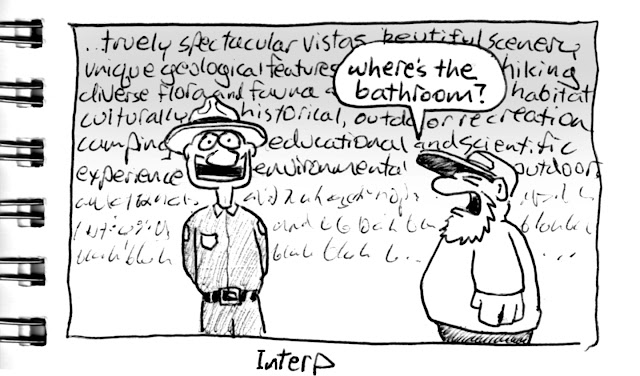 ...truely spectacular vistas, beutiful scenery
unique geological features hiking
diverse flora and fauna habitat
culturally historical, outdoor recreation
camping educational and scientific
experience environmental outdoor
and
blah blah blah blah b...
where's the
bathroom?
Interp